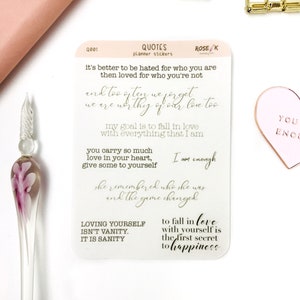 Q001
QUOTES
planner stickers
it's better to be hated for who you are
then loved for who you're not
and too often we forget
we are worthy of our love too
my goal is to fall in love
with everything that I am
you carry so much
love in your heart,
give some to yourself
I am enough
she remembered who she was
and the game changed
LOVING YOURSELF
ISN'T VANITY.
IT IS SANITY
to fall in love
with yourself is
the first secret
to happiness
YOU
ENOU